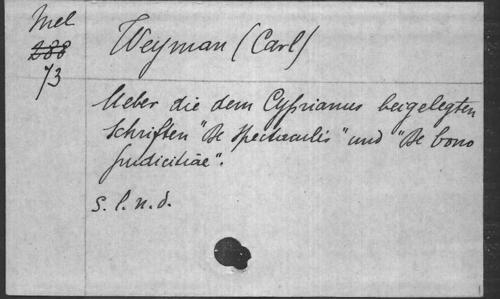 Mel
288
73
Weyman (Carl)
Ueber die dem Cyprianus beigelegten
Schriften "De Spectaculis" und "De bono
pudicitiae".
S. l. n. d.